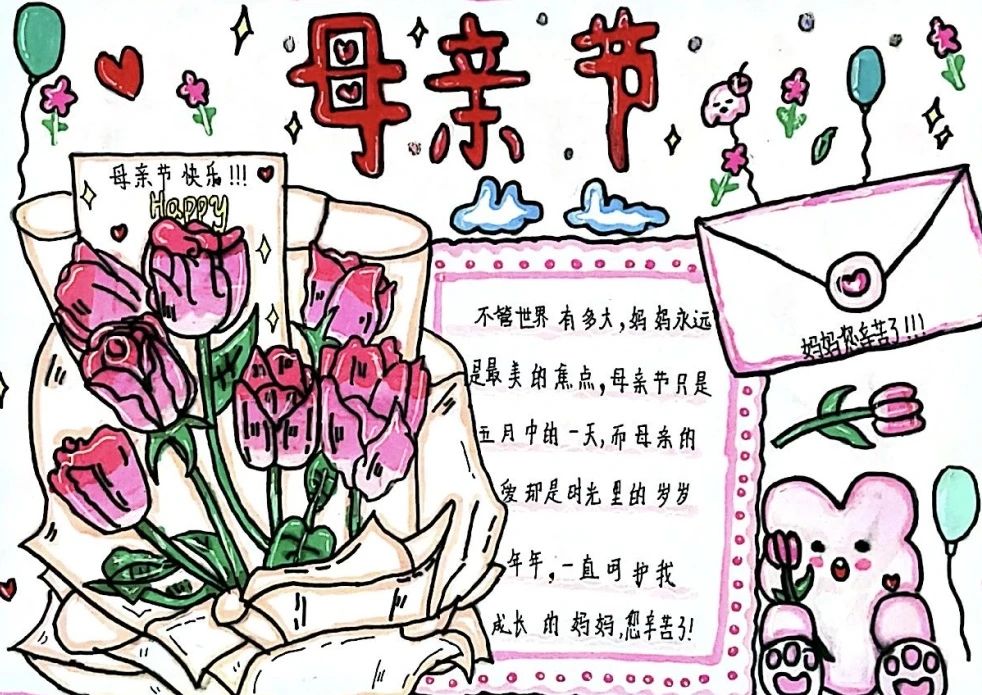 母亲节
母亲节快乐!!!
Happy
不管世界有多大,妈妈永远
是最美的焦点,母亲节只是
五月中的一天,而母亲的
爱却是时光里的岁岁
年年,一直呵护我
成长的妈妈,您辛苦了!
妈妈您辛苦了!!!